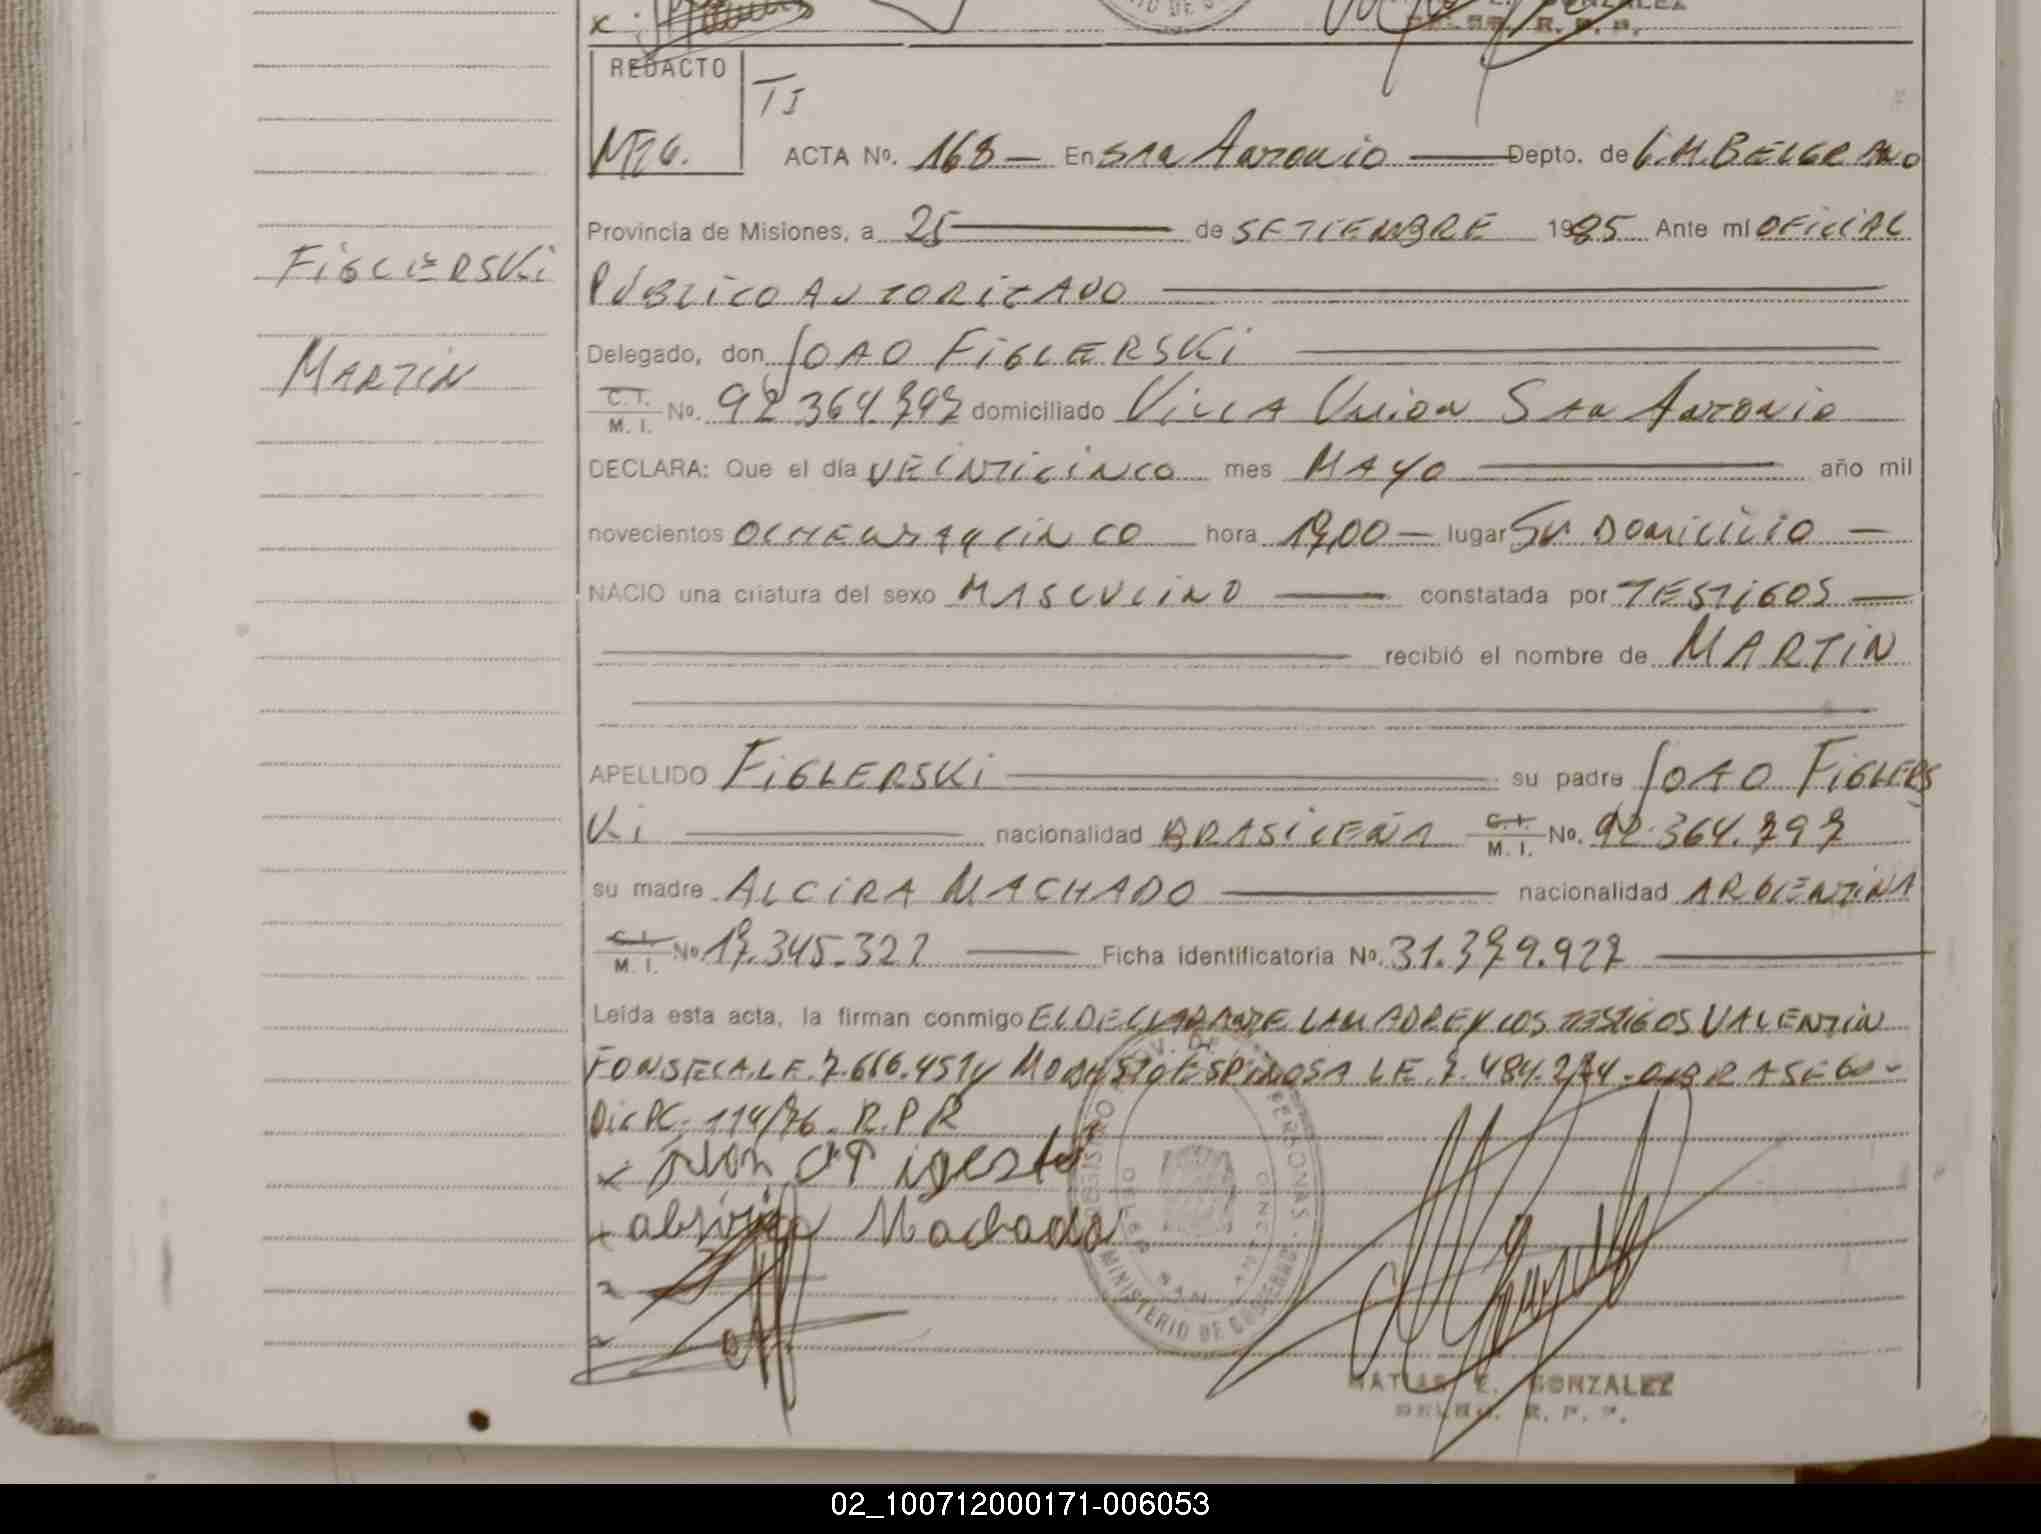 REDACTO
TJ
ACTA Nº. 168 — En San Antonio — Depto. de G.M. BELGRANO
Provincia de Misiones, a 25 — de SETIEMBRE 1985 Ante mí OFICIAL
FIGLERSKI
PUBLICO AUTORIZADO
Delegado, don JOAO FIGLERSKI
MARTIN
C. I. M. I. No. 92.364.797 domiciliado VILLA Union San Antonio
DECLARA: Que el día VEINTICINCO mes MAYO año mil
novecientos OCHENTAYCINCO hora 19,00 — lugar SU DOMICILIO —
NACIO una criatura del sexo MASCULINO — constatada por TESTIGOS —
recibió el nombre de MARTIN
APELLIDO FIGLERSKI su padre JOAO FIGLERS
KI nacionalidad BRASILEÑA C. I. M. I. No. 92.364.797
su madre ALCIRA MACHADO nacionalidad ARGENTINA
C. I. M. I. No 17.345.327 — Ficha identificatoria No. 31.379.927
Leída esta acta, la firman conmigo EL DECLARANTE LA MADRE Y LOS TESTIGOS VALENTIN
FONSECA L.E. 7.616.451 y MODESTO ESPINOSA L E. 7.484.274 -
DIC PC. 114/76. R.P.R
Machado
REGISTRO PROV. DE PERSONAS
MINISTERIO DE GOBIERNO
SAN ANTONIO
MATIAS E. GONZALEZ
DELEG. R. P. P.
02_100712000171-006053